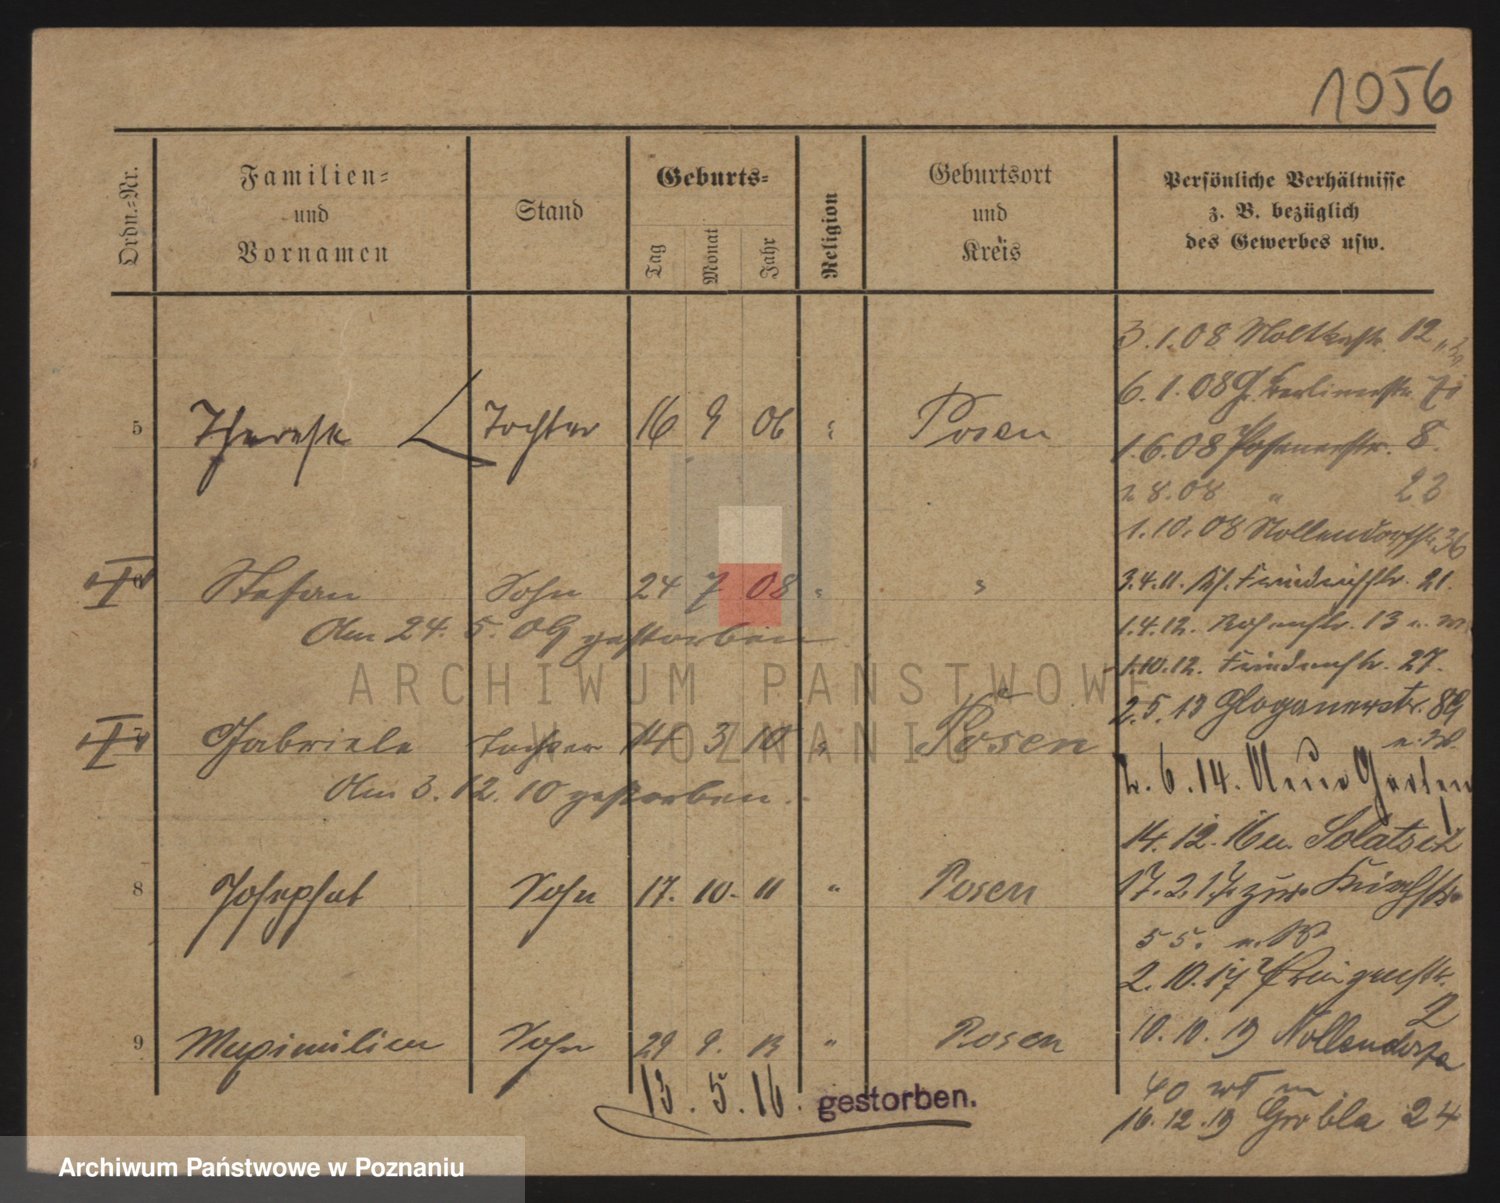 1056
Ordn.-Nr.
Familien-
und
Vornamen
Stand
Geburts-
Tag
Monat
Jahr
Religion
Geburtsort
und
Kreis
Persönliche Verhältnisse
z. B. bezüglich
des Gewerbes usw.
3.1.08 Moltkestr. 12
6.1.08 Gr. Berlinerstr.
5 Therese Tochter 16 9 06 " Posen
1.6.08 Posenerstr. 8.
2 8.08 " 23
1.10.08 Nollendorfstr. 36
6 Stefan Sohn 24 7 08 " "
3.4.11. Kl. Friedrichstr. 21.
Am 24. 5. 09 gestorben
1.4.12. Rosenstr. 13
1.10.12. Friedenstr. 27.
2.5.13 Glogauerstr. 89
7 Gabriele Tochter 14 3 10 " Posen
Am 3. 12. 10 gestorben.
2.6.14. Neue Garten
14.12.16 Solatsch
8 Josephat Sohn 17. 10. 11 " Posen
17.2.17 Kirchstr.
55.
2.10.17
2
9 Maximilian Sohn 29 9. 13 " Posen
10.10.19 Nollendorfa
13. 5. 16. gestorben.
40
16.12.19 Grobla 24
ARCHIWUM PAŃSTWOWE
W POZNANIU
Archiwum Państwowe w Poznaniu